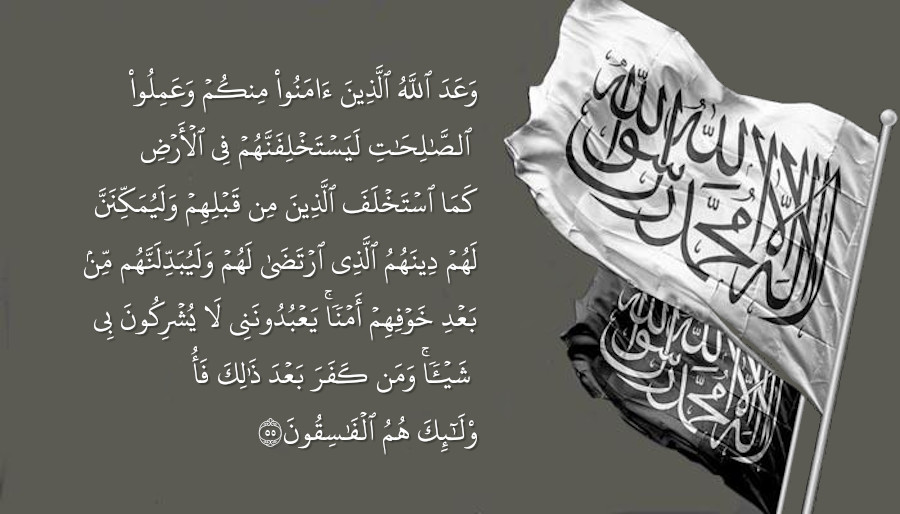 وَعَدَ ٱللَّهُ ٱلَّذِينَ ءَامَنُوا۟ مِنكُمْ وَعَمِلُوا۟
ٱلصَّـٰلِحَـٰتِ لَيَسْتَخْلِفَنَّهُمْ فِى ٱلْأَرْضِ
كَمَا ٱسْتَخْلَفَ ٱلَّذِينَ مِن قَبْلِهِمْ وَلَيُمَكِّنَنَّ
لَهُمْ دِينَهُمُ ٱلَّذِى ٱرْتَضَىٰ لَهُمْ وَلَيُبَدِّلَنَّهُم مِّنۢ
بَعْدِ خَوْفِهِمْ أَمْنًا ۚ يَعْبُدُونَنِى لَا يُشْرِكُونَ بِى
شَيْـًٔا ۚ وَمَن كَفَرَ بَعْدَ ذَٰلِكَ فَأُ
و۟لَـٰٓئِكَ هُمُ ٱلْفَـٰسِقُونَ ٥٥
لا إله إلا الله محمد رسول الله
لا إله إلا الله محمد رسول الله